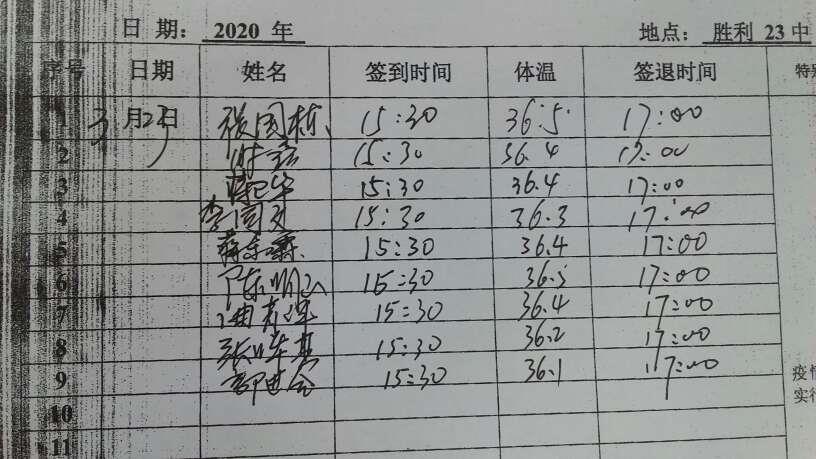 日 期： 2020 年 地点： 胜利 23 中
序号 日期 姓名 签到时间 体温 签退时间 特别
1 3月23日 张国栋 15:30 36.5 17:00
2 15:30 36.4 17:00
3 15:30 36.4 17:00
4 李国文 15:30 36.3 17:00
5 15:30 36.4 17:00
6 15:30 36.5 17:00
7 15:30 36.4 17:00
8 15:30 36.2 17:00
9 15:30 36.1 17:00
疫情
10 实行
11